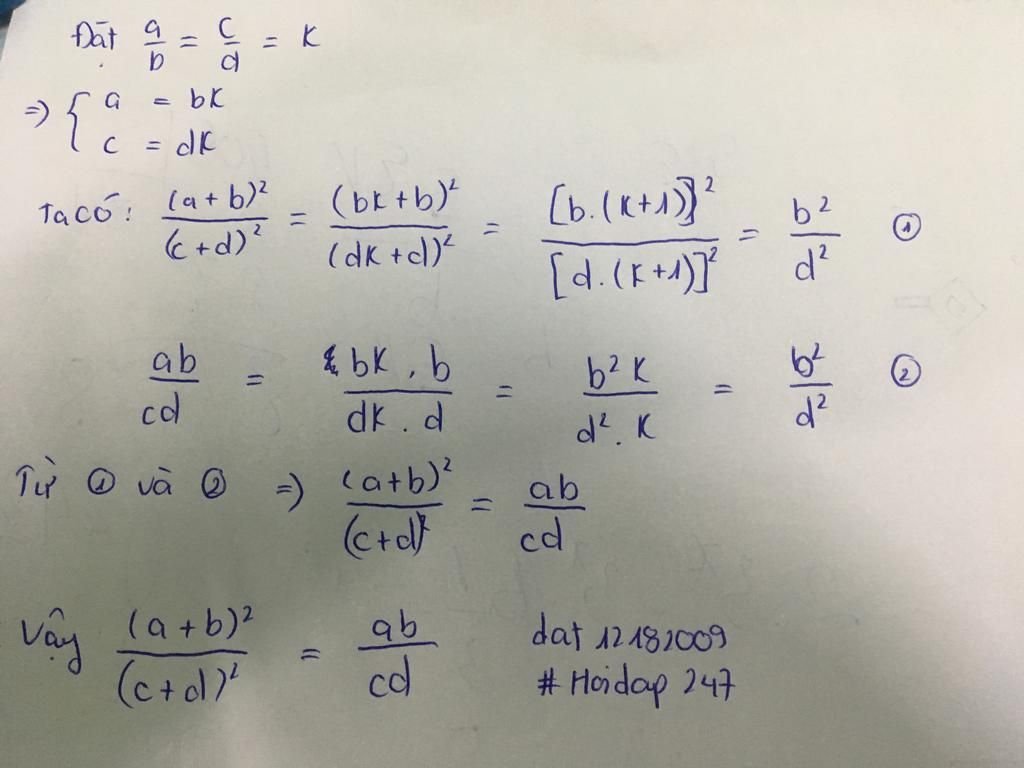 Đặt a/b = c/d = K
=> { a = bK
c = dK
Ta có: (a+b)²/(c+d)² = (bK+b)²/(dK+d)² = [b.(K+1)]²/[d.(K+1)]² = b²/d² ①
ab/cd = bK . b/dK . d = b²K/d².K = b²/d² ②
Từ ① và ② => (a+b)²/(c+d)² = ab/cd
Vậy (a+b)²/(c+d)² = ab/cd
dat 12182009
# Hoidap 247